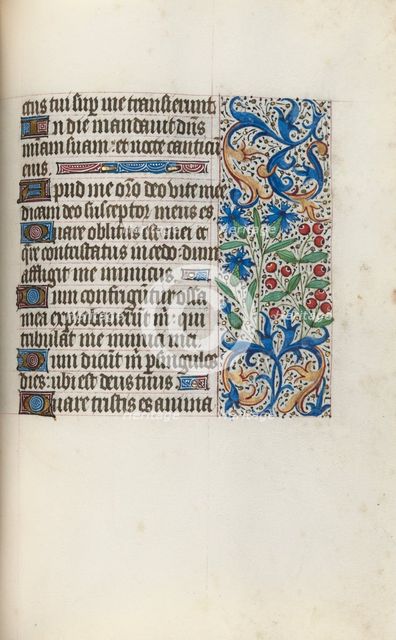 ctus tui sup me transierunt
In die mandauit dns
miam suam: et nocte canticū
eius
Apud me oro deo vite mee
dicam deo susceptor meus es
Quare oblitus est mei et
qre contristatus incedo dum
affligit me inimicus
Dum confringūtur ossa
mea exprobrauerūt m qui
tribulāt me inimici mei
Dum dicūt m p singulos
dies: ubi est deus tuus
Quare tristis es anima
heritage